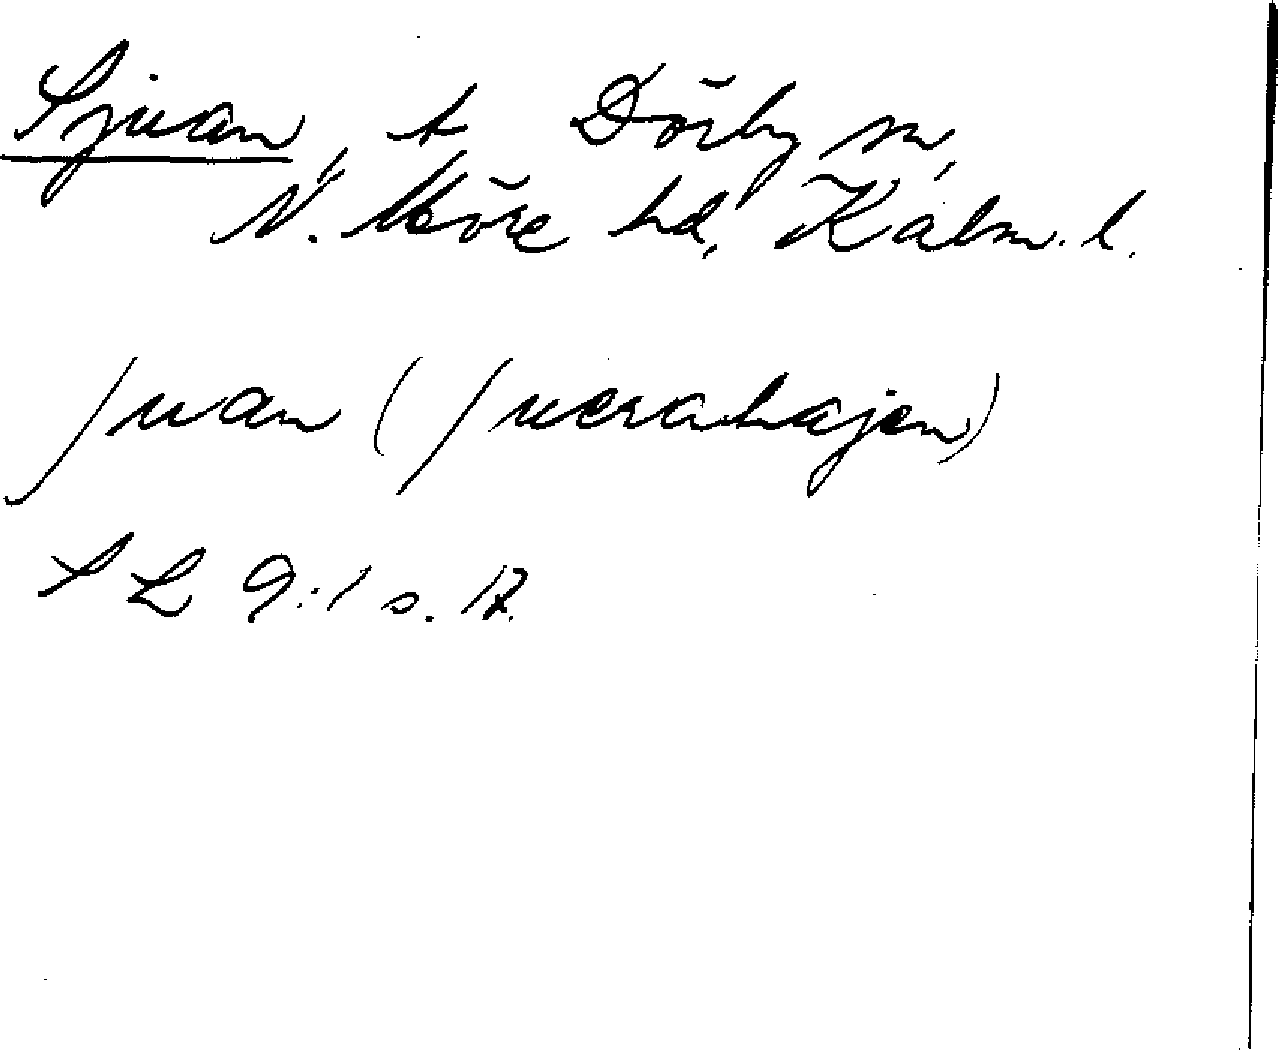 Sjuan, t Dörby sn,
N. Möre hd, Kalm. l.
ʃuan (ʃuerahajen)
SL 9:1 s. 17.